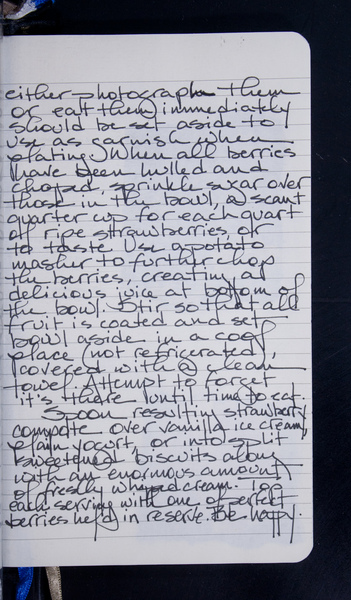 either photograph them
or eat them immediately
should be set aside to
use as garnish when
plating. When all berries
have been hulled and
chopped, sprinkle sugar over
those in the bowl, a scant
quarter cup for each quart
of ripe strawberries, or
to taste. Use a potato
masher to further chop
the berries, creating a
delicious juice at bottom of
the bowl. Stir so that all
fruit is coated and set
bowl aside in a cool
place (not refrigerated),
covered with a clean
towel. Attempt to forget
it's there until time to eat.
Spoon resulting strawberry
compote over vanilla ice cream,
plain yogurt, or into split
sweetened biscuits along
with an enormous amount
of freshly whipped cream. Top
each serving with one of perfect
berries held in reserve. Be happy.